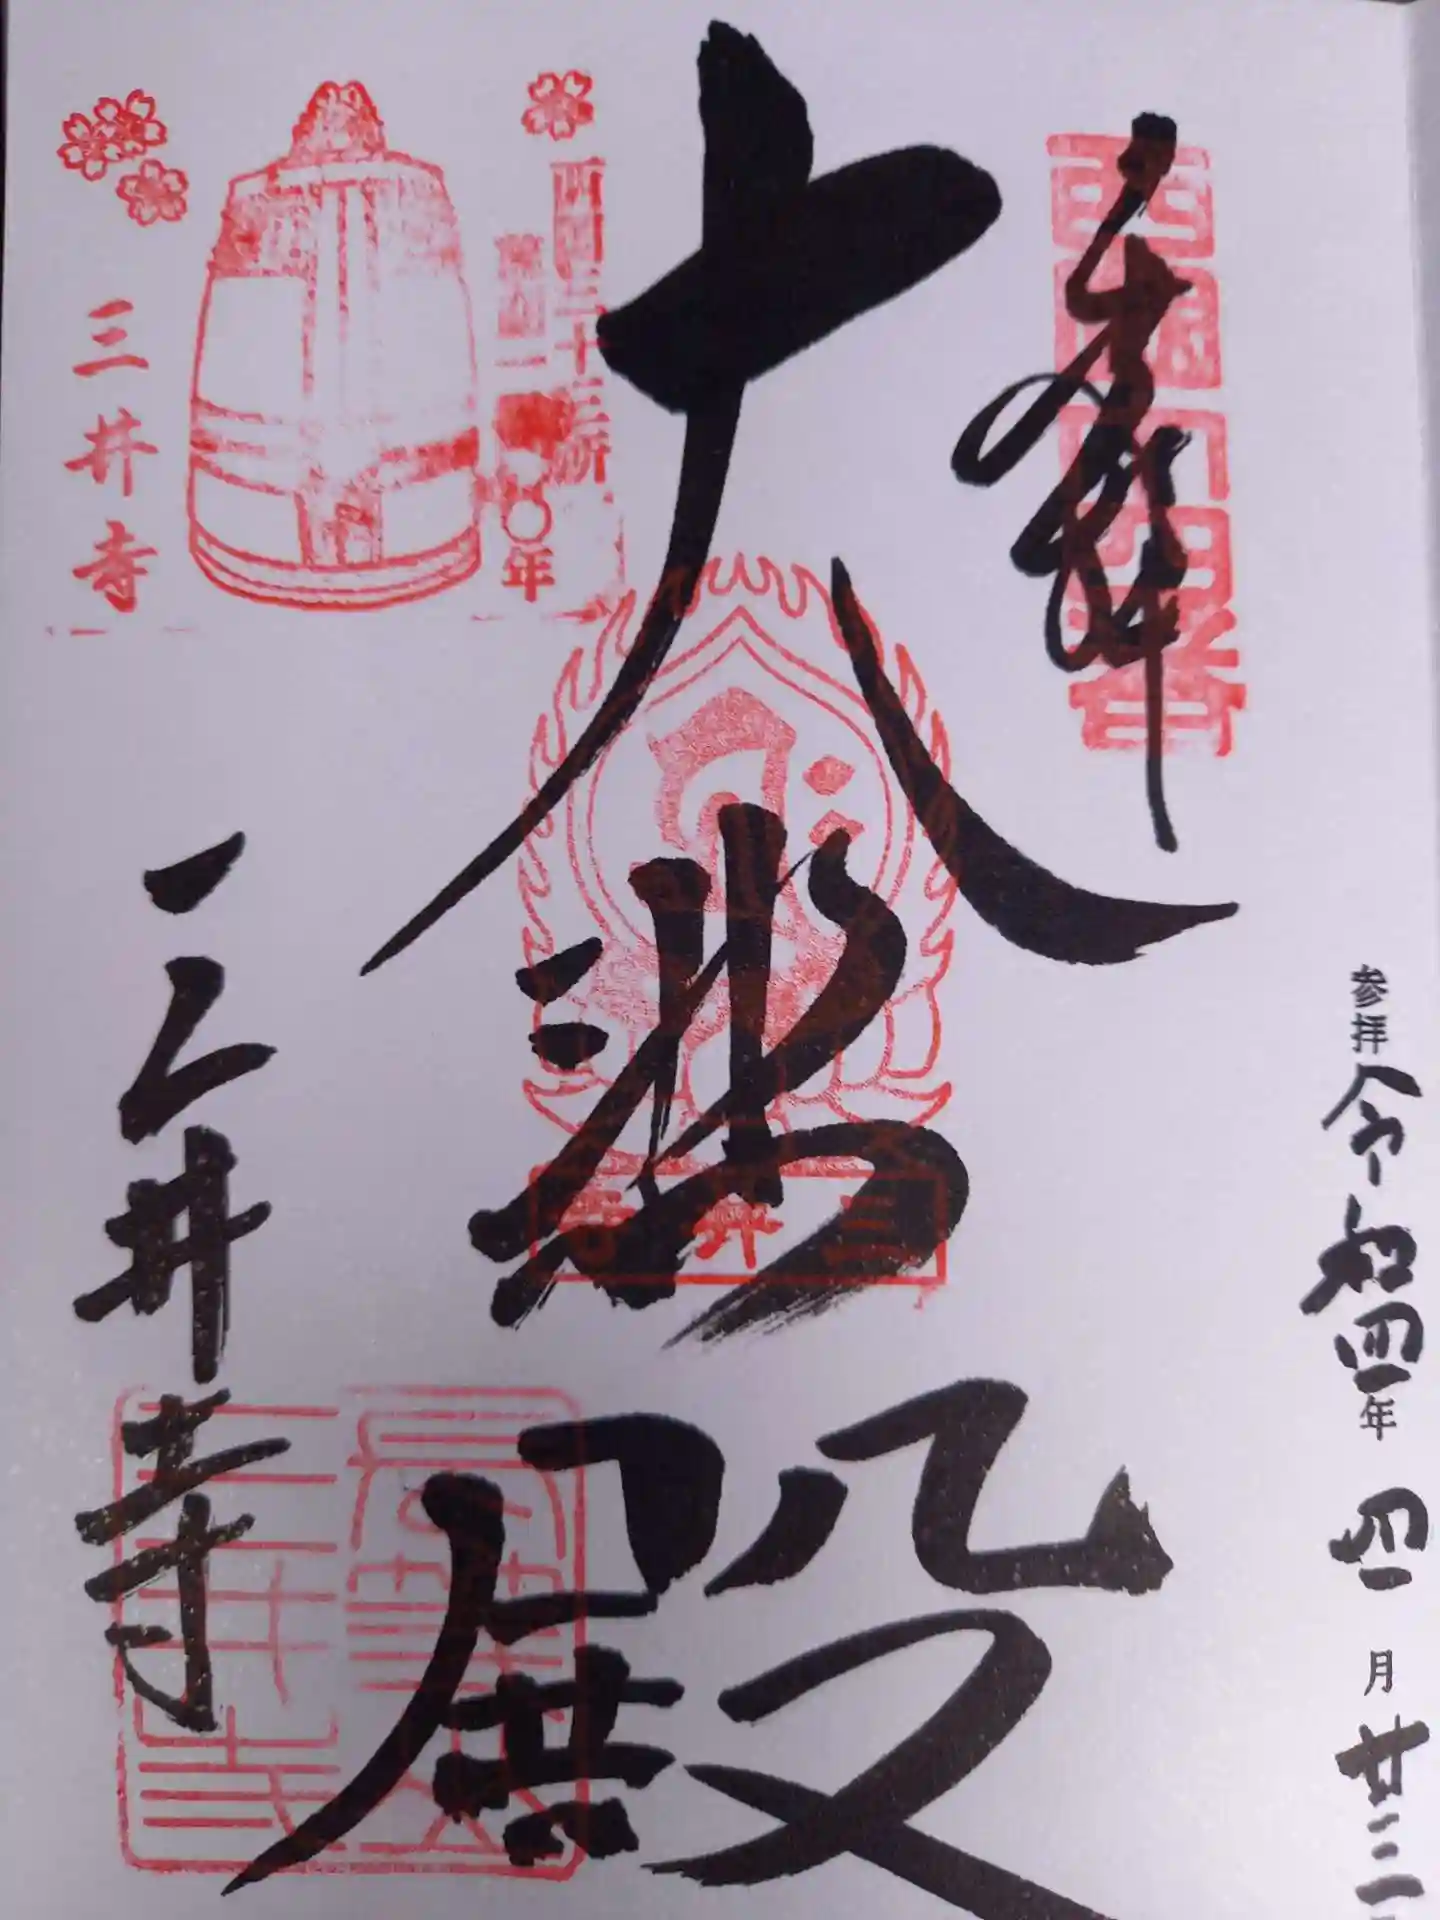 参拝 令和四年 四月 廿三
奉拝
西国十四番
大悲殿
三井寺
西国三十三所
草創一三〇〇年
三井寺
三井寺